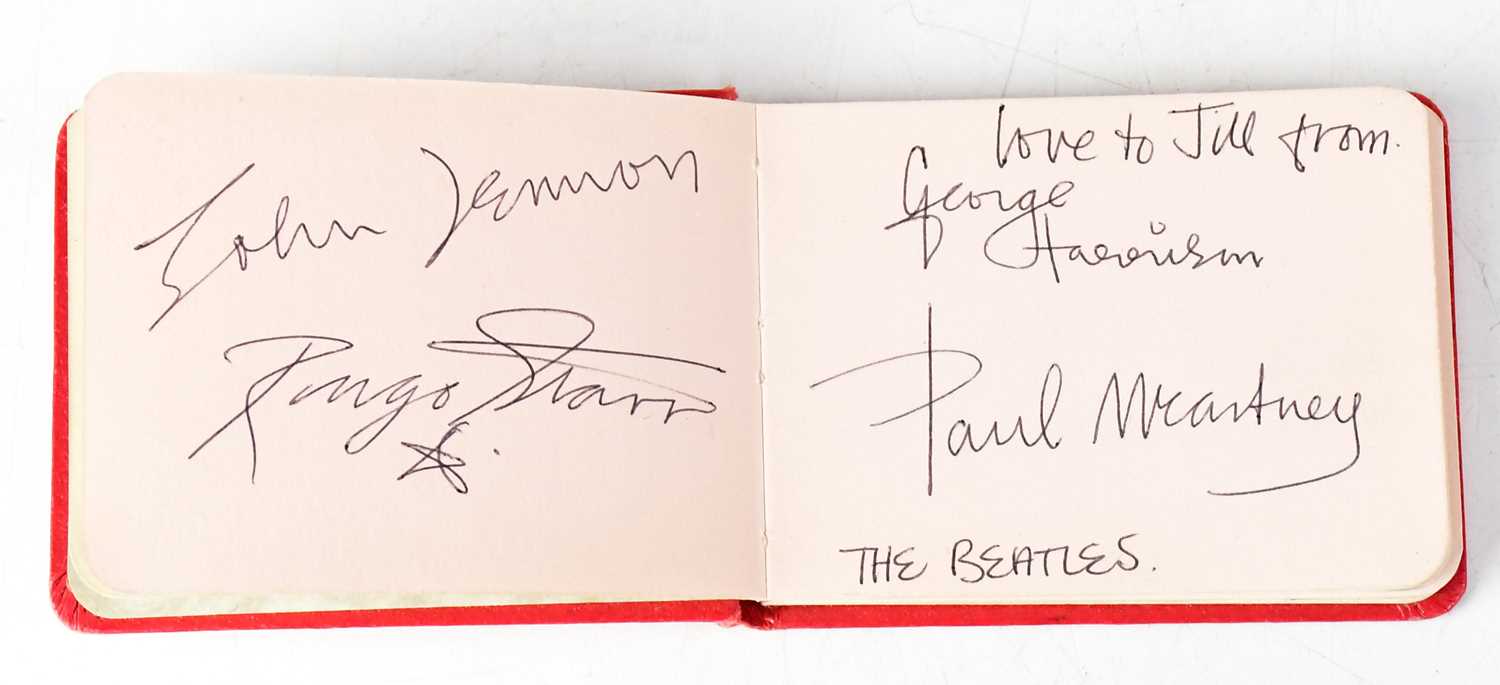 John Lennon
Ringo Starr
love to Jill from.
George
Harrison
Paul McCartney
THE BEATLES.